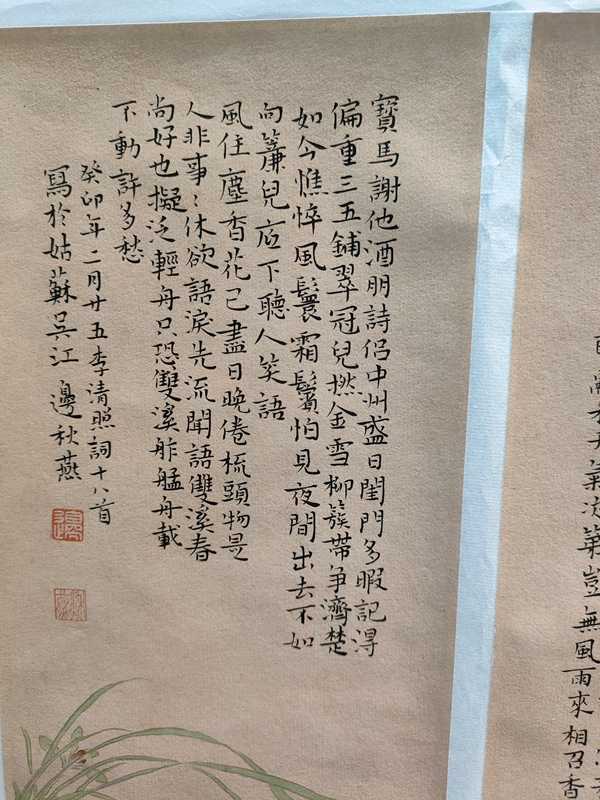 天氣次第豈無風雨來相召香
寶馬謝他酒朋詩侶中州盛日閨門多暇記淂
偏重三五鋪翠冠兒撚金雪柳簇帶争濟楚
如今憔悴風鬟霜鬢怕見夜間出去不如
向簾兒底下聽人笑語
風住塵香花已盡日晚倦梳頭物是
人非事〻休欲語淚先流聞語雙溪春
尚好也擬泛輕舟只恐雙溪舴艋舟載
不動許多愁
癸卯年二月廿五李清照詞十八首
寫於姑蘇吳江邊秋燕